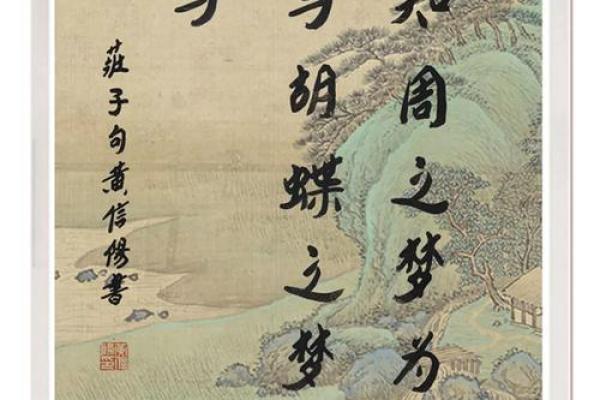 知周之梦为
与胡蝶之梦
与
莊子句黄信陽書